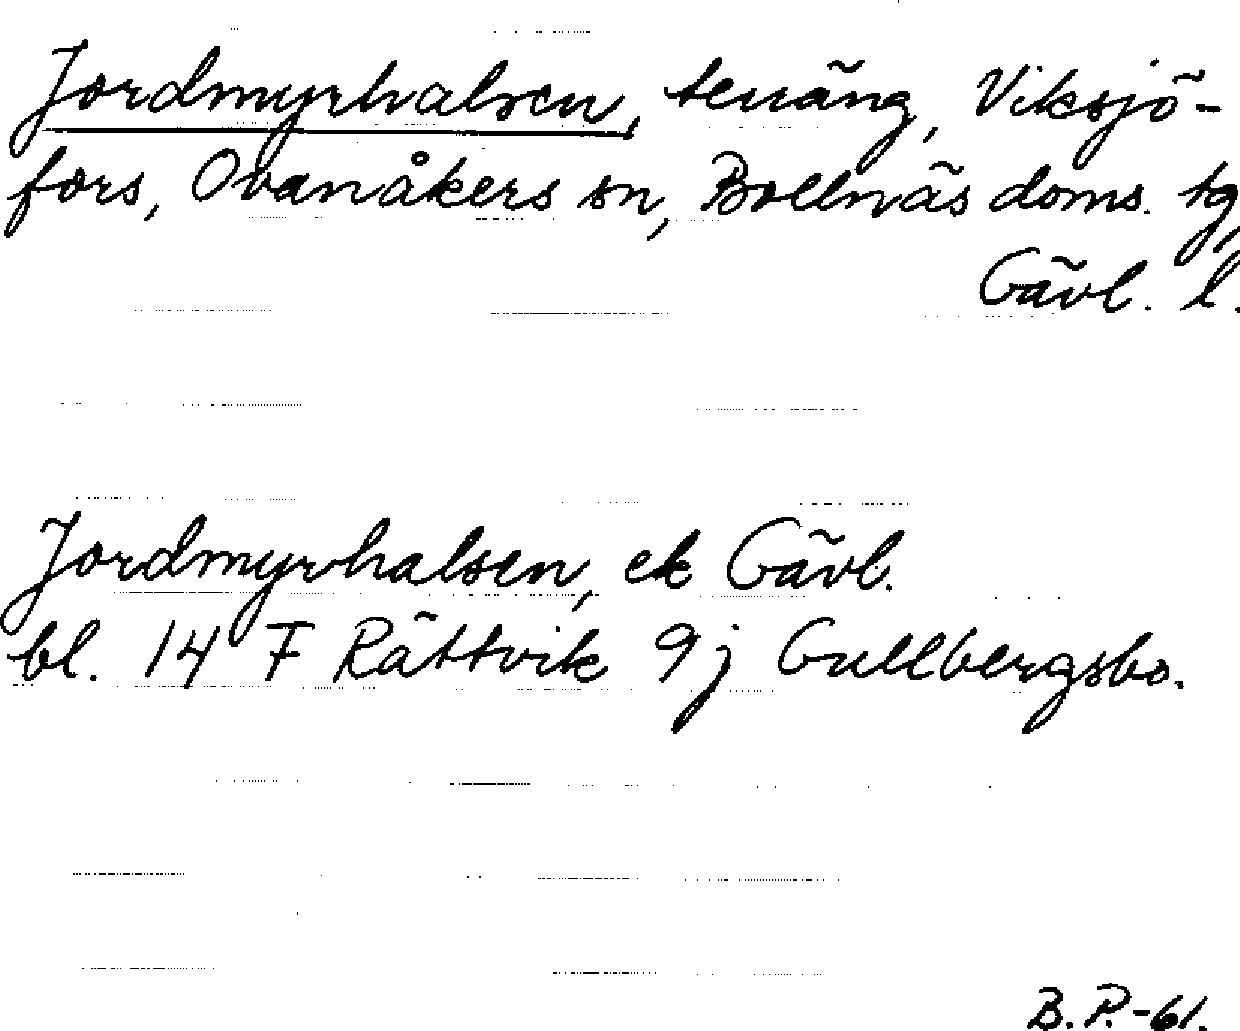 Jordmyrhalsen, teuäng, Viksjö-
fors, Ovanåkers sn, Bollnäs doms. tg,
Gävl. l.
Jordmyrhalsen, ek Gävl.
bl. 14 F Rättvik 9j Gullbergsbo.
B.P.-61.